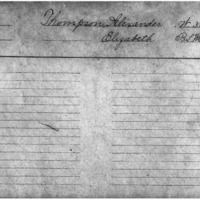 Thompson, Alexander
Elizabeth